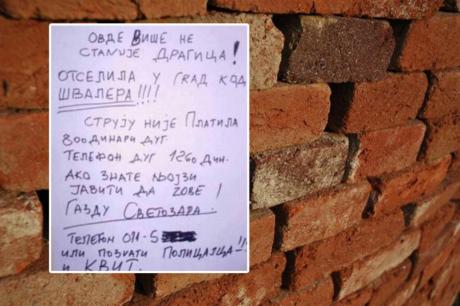 ОВДЕ ВИШЕ НЕ
СТАНУЈЕ ДРАГИЦА!
ОТСЕЛИЛА У ГРАД КОД
ШВАЛЕРА!!!!
СТРУЈУ НИЈЕ ПЛАТИЛА
800 ДИНАРИ ДУГ.
ТЕЛЕФОН ДУГ 1260 ДИН.
АКО ЗНАТЕ ЊОЈЗИ
ЈАВИТИ ДА ЗОВЕ!
ГАЗДУ СВЕТОЗАРА.
ТЕЛЕФОН 011-5
ИЛИ ПОЗВАТИ ПОЛИЦАЈЦА-!!
И КВИТ.